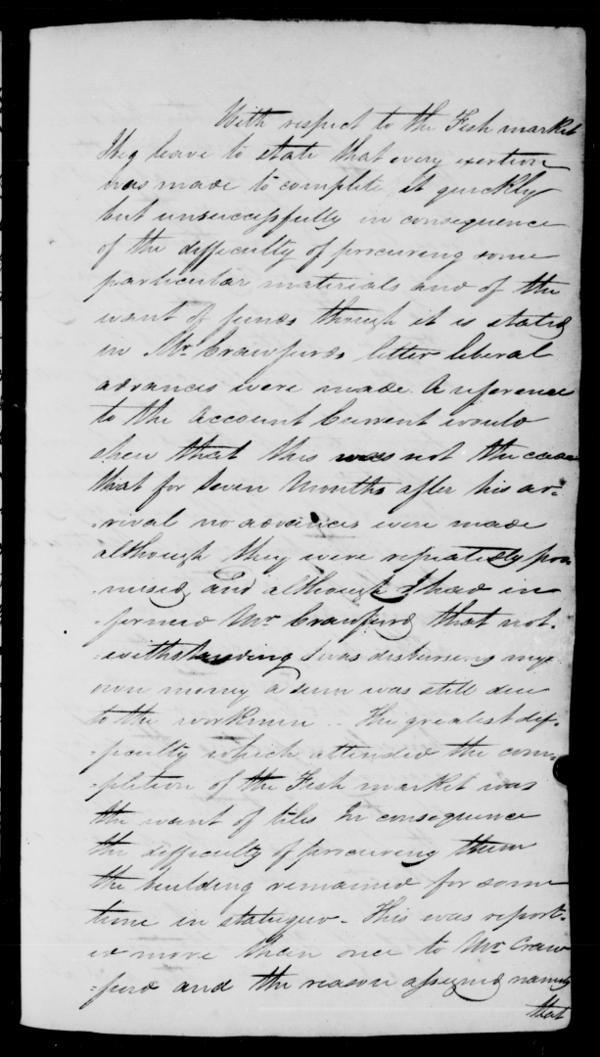 With respect to the Fish market
I beg leave to state that every exertion
was made to complete it quickly
but unsuccessfully in consequence
of the difficulty of procuring some
particular materials and of the
want of funds though it is stated
in Mr. Crawfurds letter liberal
advances were made. A reference
to the Account Current would
shew that this was not the case
that for Seven Months after his ar-
-rival no advances were made
although they were repeatedly pro
-mised, and although I had in
-formed Mr Crawfurd that not-
-withstanding I was disbursing my
own money a sum was still due
to the workmen - The greatest dif-
-ficulty which attended the com-
-pletion of the Fish market was
the want of tiles In consequence
the difficulty of procuring them
the building remained for some
time in statuquo - This was report-
ed more than once to Mr. Craw
=furd and the reason assigned namely
that